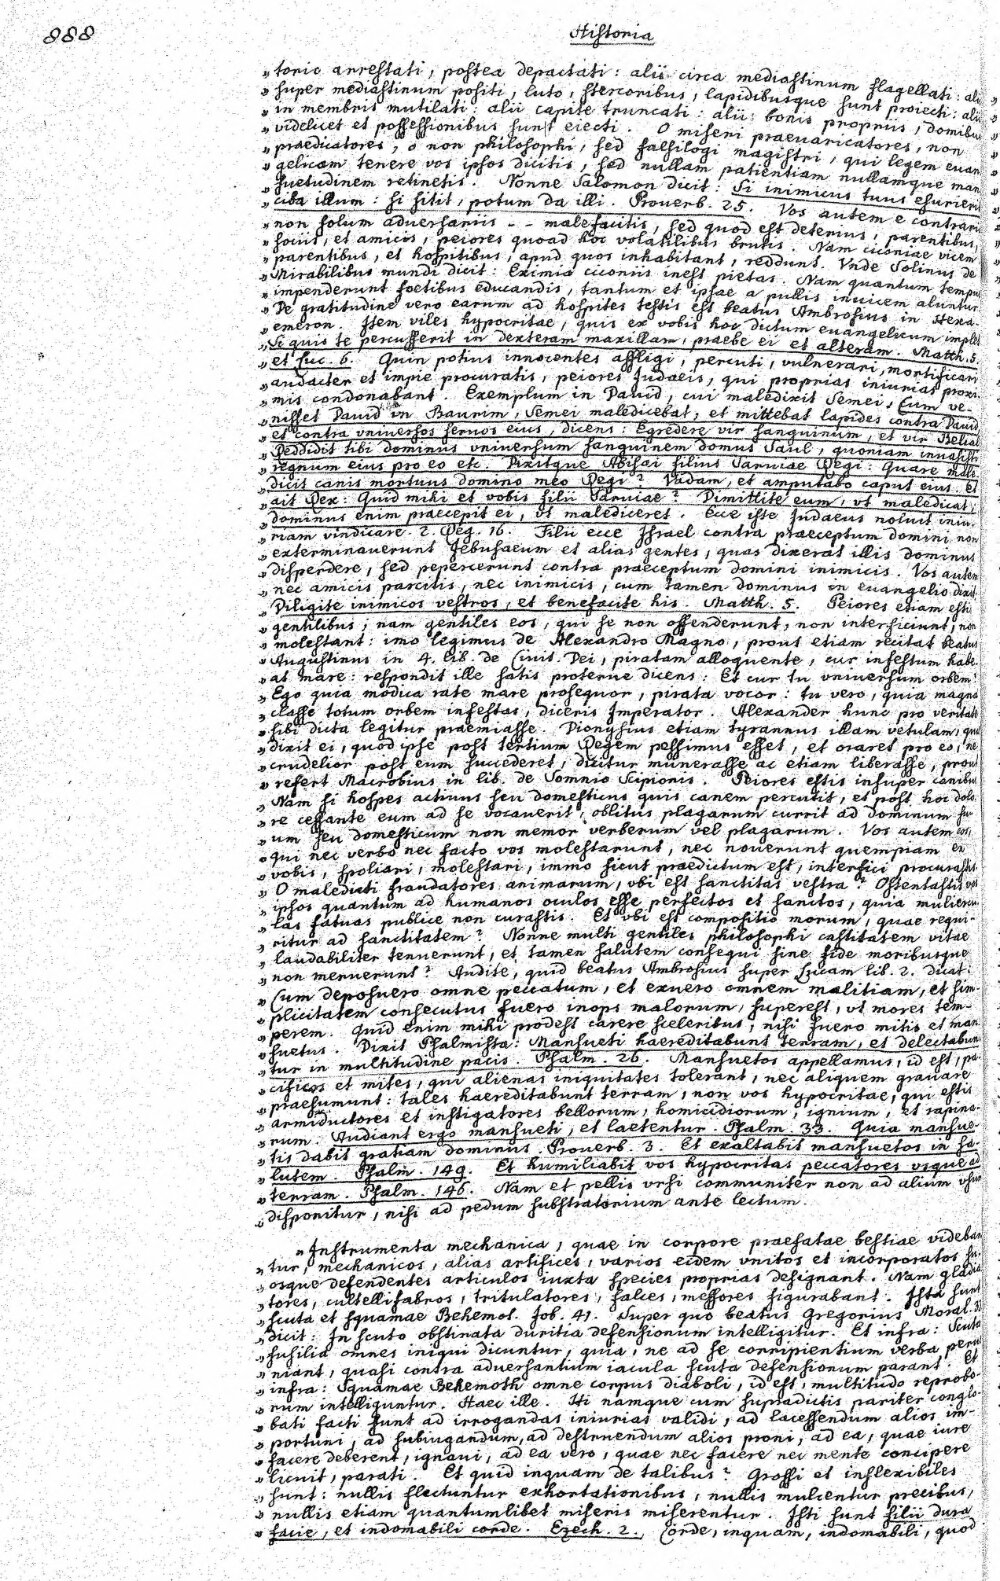 888
Historia
„torie arrestati, postea depactati: alii circa mediastinum flagellati: alii
„super mediastinum positi, luto, stercoribus, lapidibusque sunt proiecti: alii
„in membris mutilati: alii capite truncati: alii: bonis propriis, domibus
„videlicet et possessionibus sunt eiecti. O miseri praevaricatores, non
„praedicatores, o non philosophi, sed falsilogi magistri, qui legem euan
„gelicam tenere vos ipsos dicitis, sed nullam patientiam nullamque man
„suetudinem retinetis. Nonne Salomon dicit: Si inimicus tuus esurierit
„ciba illum: si sitit, potum da illi. Prouerb. 25. Vos autem e contrari
„non solum aduersariis -- malefacitis, sed quod est deterius, parentibus,
„sociis, et amicis, peiores quoad hoc volatilibus brutis. Nam ciconiae vicem
„parentibus, et hospitibus, apud quos inhabitant, reddunt. Vnde Solinus de
„Mirabilibus mundi dicit: Eximia ciconiis inest pietas. Nam quantum tempus
„impenderunt foetibus educandis, tantum et ipsae a pullis inuicem aluntur.
„De gratitudine vero earum ad hospites testis est beatus Ambrosius in Hexa-
„emeron. Item viles hypocritae, quis ex vobis hoc dictum euangelicum implet
„Si quis te percusserit in dexteram maxillam, praebe ei et alteram. Matth. 5.
„et Luc. 6. Quin potius innocentes affligi, percuti, vulnerari, mortificari
„audacter et impie procuratis, peiores Judaeis, qui proprias iniurias proxi-
„mis condonabant. Exemplum in Dauid, cui maledixit Semei, Cum ve-
„nisset Dauid in Baurim, Semei maledicebat, et mittebat lapides contra Dauid
„et contra vniuersos seruos eius, dicens: Egredere vir sanguinum, et vir Belial
„Reddidit tibi dominus vniuersum sanguinem domus Saul, quoniam inuasisti
„regnum eius pro eo etc. Dixitque Abisai filius Saruiae Regi: Quare male-
„dicit canis mortuus domino meo Regi? Vadam, et amputabo caput eius. et
„ait Rex: Quid mihi et vobis filii Saruiae? Dimittite eum, vt maledicat;
„dominus enim praecepit ei, vt malediceret. Ecce iste Judaeus noluit iniu-
„riam vindicare. 2. Reg. 16. Filii ecce Israel contra praeceptum domini non
„exterminauerunt Jebusaeum et alias gentes, quas dixerat illis Dominus
„disperdere, sed pepercerunt contra praeceptum domini inimicis. Vos autem
„nec amicis parcitis, nec inimicis, cum tamen dominus in euangelio dixit
„Diligite inimicos vestros, et benefacite his. Matth. 5. Peiores etiam estis
„gentilibus; nam gentiles eos, qui se non offenderunt, non interficiunt, nec
„molestant: imo legimus de Alexandro Magno, prout etiam recitat beatus
„Augustinus in 4. lib. de Ciuit. Dei, piratam alloquente, cur infestum habe-
„at mare: respondit ille satis proterue dicens: Et cur tu vniuersum orbem?
„Ego quia modica rate mare prosequor, pirata vocor: tu vero, quia magna
„classe totum orbem infestas, diceris Imperator. Alexander hunc pro veritate
„sibi dicta legitur praemiasse. Dionysius etiam tyrannus illam vetulam, quae
„dixit ei, quod ipse post tertium Regem pessimus esset, et oraret pro eo, ne
„crudelior post eum succederet, dicitur munerasse ac etiam liberasse, prout
„refert Macrobius in lib. de Somnio Scipionis. Peiores estis insuper canibus
„Nam si hospes actiuus seu domesticus quis canem percutit, et post hoc dolo
„re cessante eum ad se vocauerit, oblitus plagarum currit ad dominum su-
„um seu domesticum non memor verberum vel plagarum. Vos autem eos,
„qui nec verbo nec facto vos molestarunt, nec nouerunt quempiam ex
„vobis, spoliari, molestari, immo sicut praedictum est, interfici procurastis.
„O maledicti fraudatores animarum, vbi est sanctitas vestra? Ostentastis vos
„ipsos quantum ad humanos oculos esse perfectos et sanctos, quia muliercu-
„las fatuas publice non curastis. Et vbi est compositio morum, quae requi-
„ritur ad sanctitatem? Nonne multi gentiles philosophi castitatem vitae
„laudabiliter tenuerunt, et tamen salutem consequi sine fide moribusque
„non meruerunt? Audite, quid beatus Ambrosius super Lucam lib. 2. dicat:
„Cum deposuero omne peccatum, et exuero omnem malitiam, et sim-
„plicitatem consecutus fuero inops malorum, superest, vt mores tem-
„perem. Quid enim mihi prodest carere sceleribus, nisi fuero mitis et man
„suetus. Dixit Psalmista: Mansueti haereditabunt terram, et delectabun
„tur in multitudine pacis. Psalm. 26. Mansuetos appellamus, id est, pa-
„cificos et mites, qui alienas iniquitates tolerant, nec aliquem grauare
„praesumunt: tales haereditabunt terram, non vos hypocritae, qui estis
„armiductores et instigatores bellorum, homicidiorum, ignium, et rapina-
„rum. Audiant ergo mansueti, et laetentur. Psalm. 33. Quia mansue-
„tis dabit gratiam dominus. Prouerb. 3. Et exaltabit mansuetos in sa-
„lutem. Psalm. 149. Et humiliabit vos hypocritas peccatores vsque ad
„terram. Psalm. 146. Nam et pellis vrsi communiter non ad alium vsum
„disponitur, nisi ad pedum substratorium ante lectum.
„Instrumenta mechanica, quae in corpore praefatae bestiae videban
„tur, mechanicos, alias artifices, varios eidem vnitos et incorporatos su-
„osque defendentes articulos iuxta species proprias designant. Nam gladia
„tores, cultellifabros, tritulatores, falces, messores figurabant. Ista sunt
„scuta et squamae Behemot. Job. 41. Super quo beatus Gregorius Moral. 33
„dicit: In scuto obstinata duritia defensionum intelligitur. Et infra: Scuto
„fusilia omnes iniqui dicuntur, quia, ne ad se corripientium verba perue
„niant, quasi contra aduersantium iacula scuta defensionum parant. Et
„infra: Squamae Behemoth omne corpus diaboli, id est, multitudo reprobo-
„rum intelliguntur. Haec ille. Hi namque cum supradictis pariter conglo-
„bati facti sunt ad irrogandas iniurias validi, ad lacessendum alios im-
„portuni, ad subiugandum, ad destruendum alios proni, ad ea, quae iure
„facere deberent, ignaui, ad ea vero, quae nec facere nec mente concipere
„licuit, parati. Et quid inquam de talibus? Grossi et inflexibiles
„sunt: nullis flectuntur exhortationibus, nullis mulcentur precibus,
„nullis etiam quantumlibet miseris miserentur. Isti sunt filii dura
„facie, et indomabili corde. Ezech. 2. Corde, inquam, indomabili, quod